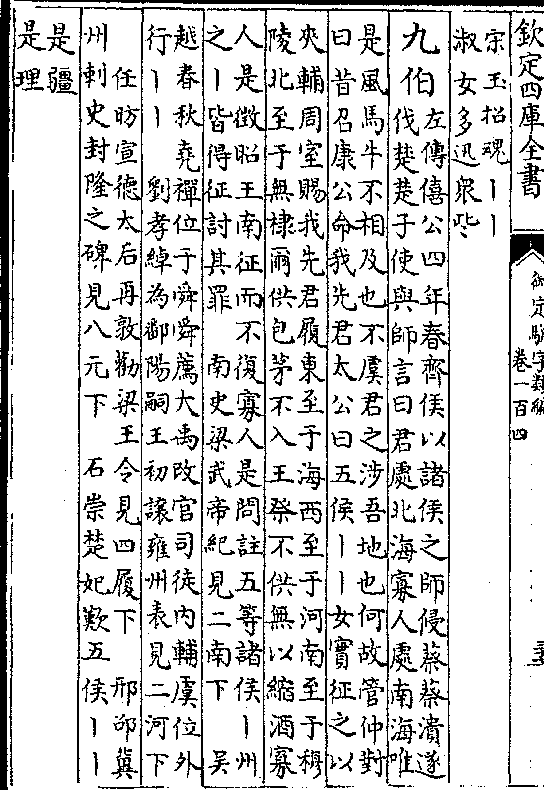 欽定四庫全書
御定駢字類編
卷一百四
宋玉招魂丨丨
淑女多迅衆些
九伯
左傳僖公四年春齊侯以諸侯之師侵蔡蔡潰遂
伐楚楚子使與師言曰君處北海寡人處南海唯
是風馬牛不相及也不虞君之涉吾地也何故管仲對
曰昔召康公命我先君太公曰五侯丨丨女實征之以
夾輔周室賜我先君履東至于海西至于河南至于穆
陵北至于無棣爾供包茅不入王祭不供無以縮酒寡
人是徵昭王南征而不復寡人是問註五等諸侯丨州
之丨皆得征討其罪 南史梁武帝紀見二南下 吳
越春秋堯禪位于舜舜薦大禹改官司徒內輔虞位外
行丨丨 劉孝綽為鄱陽嗣王初讓雍州表見二河下
任昉宣德太后再敦勸梁王令見四履下 邢邵冀
州刺史封隆之碑見八元下 石崇楚妃歎五侯丨丨
是疆
是理